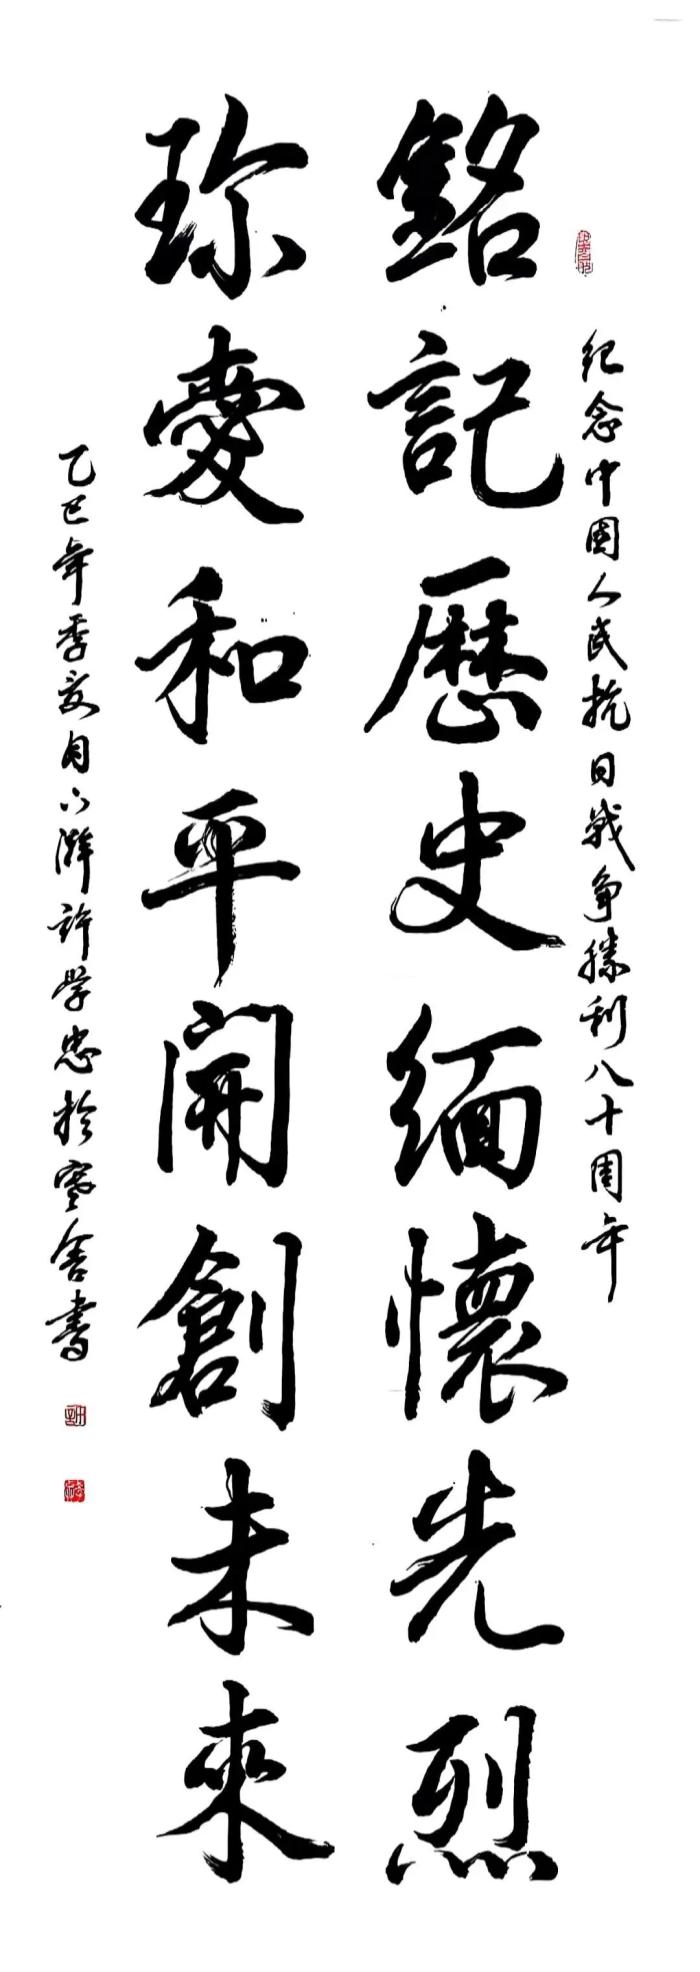 纪念中國人民抗日戰争勝利八十周年
銘記歷史緬懷先烈
珍愛和平開創未來
乙巳年季夏月下澣許學忠於寒舍書